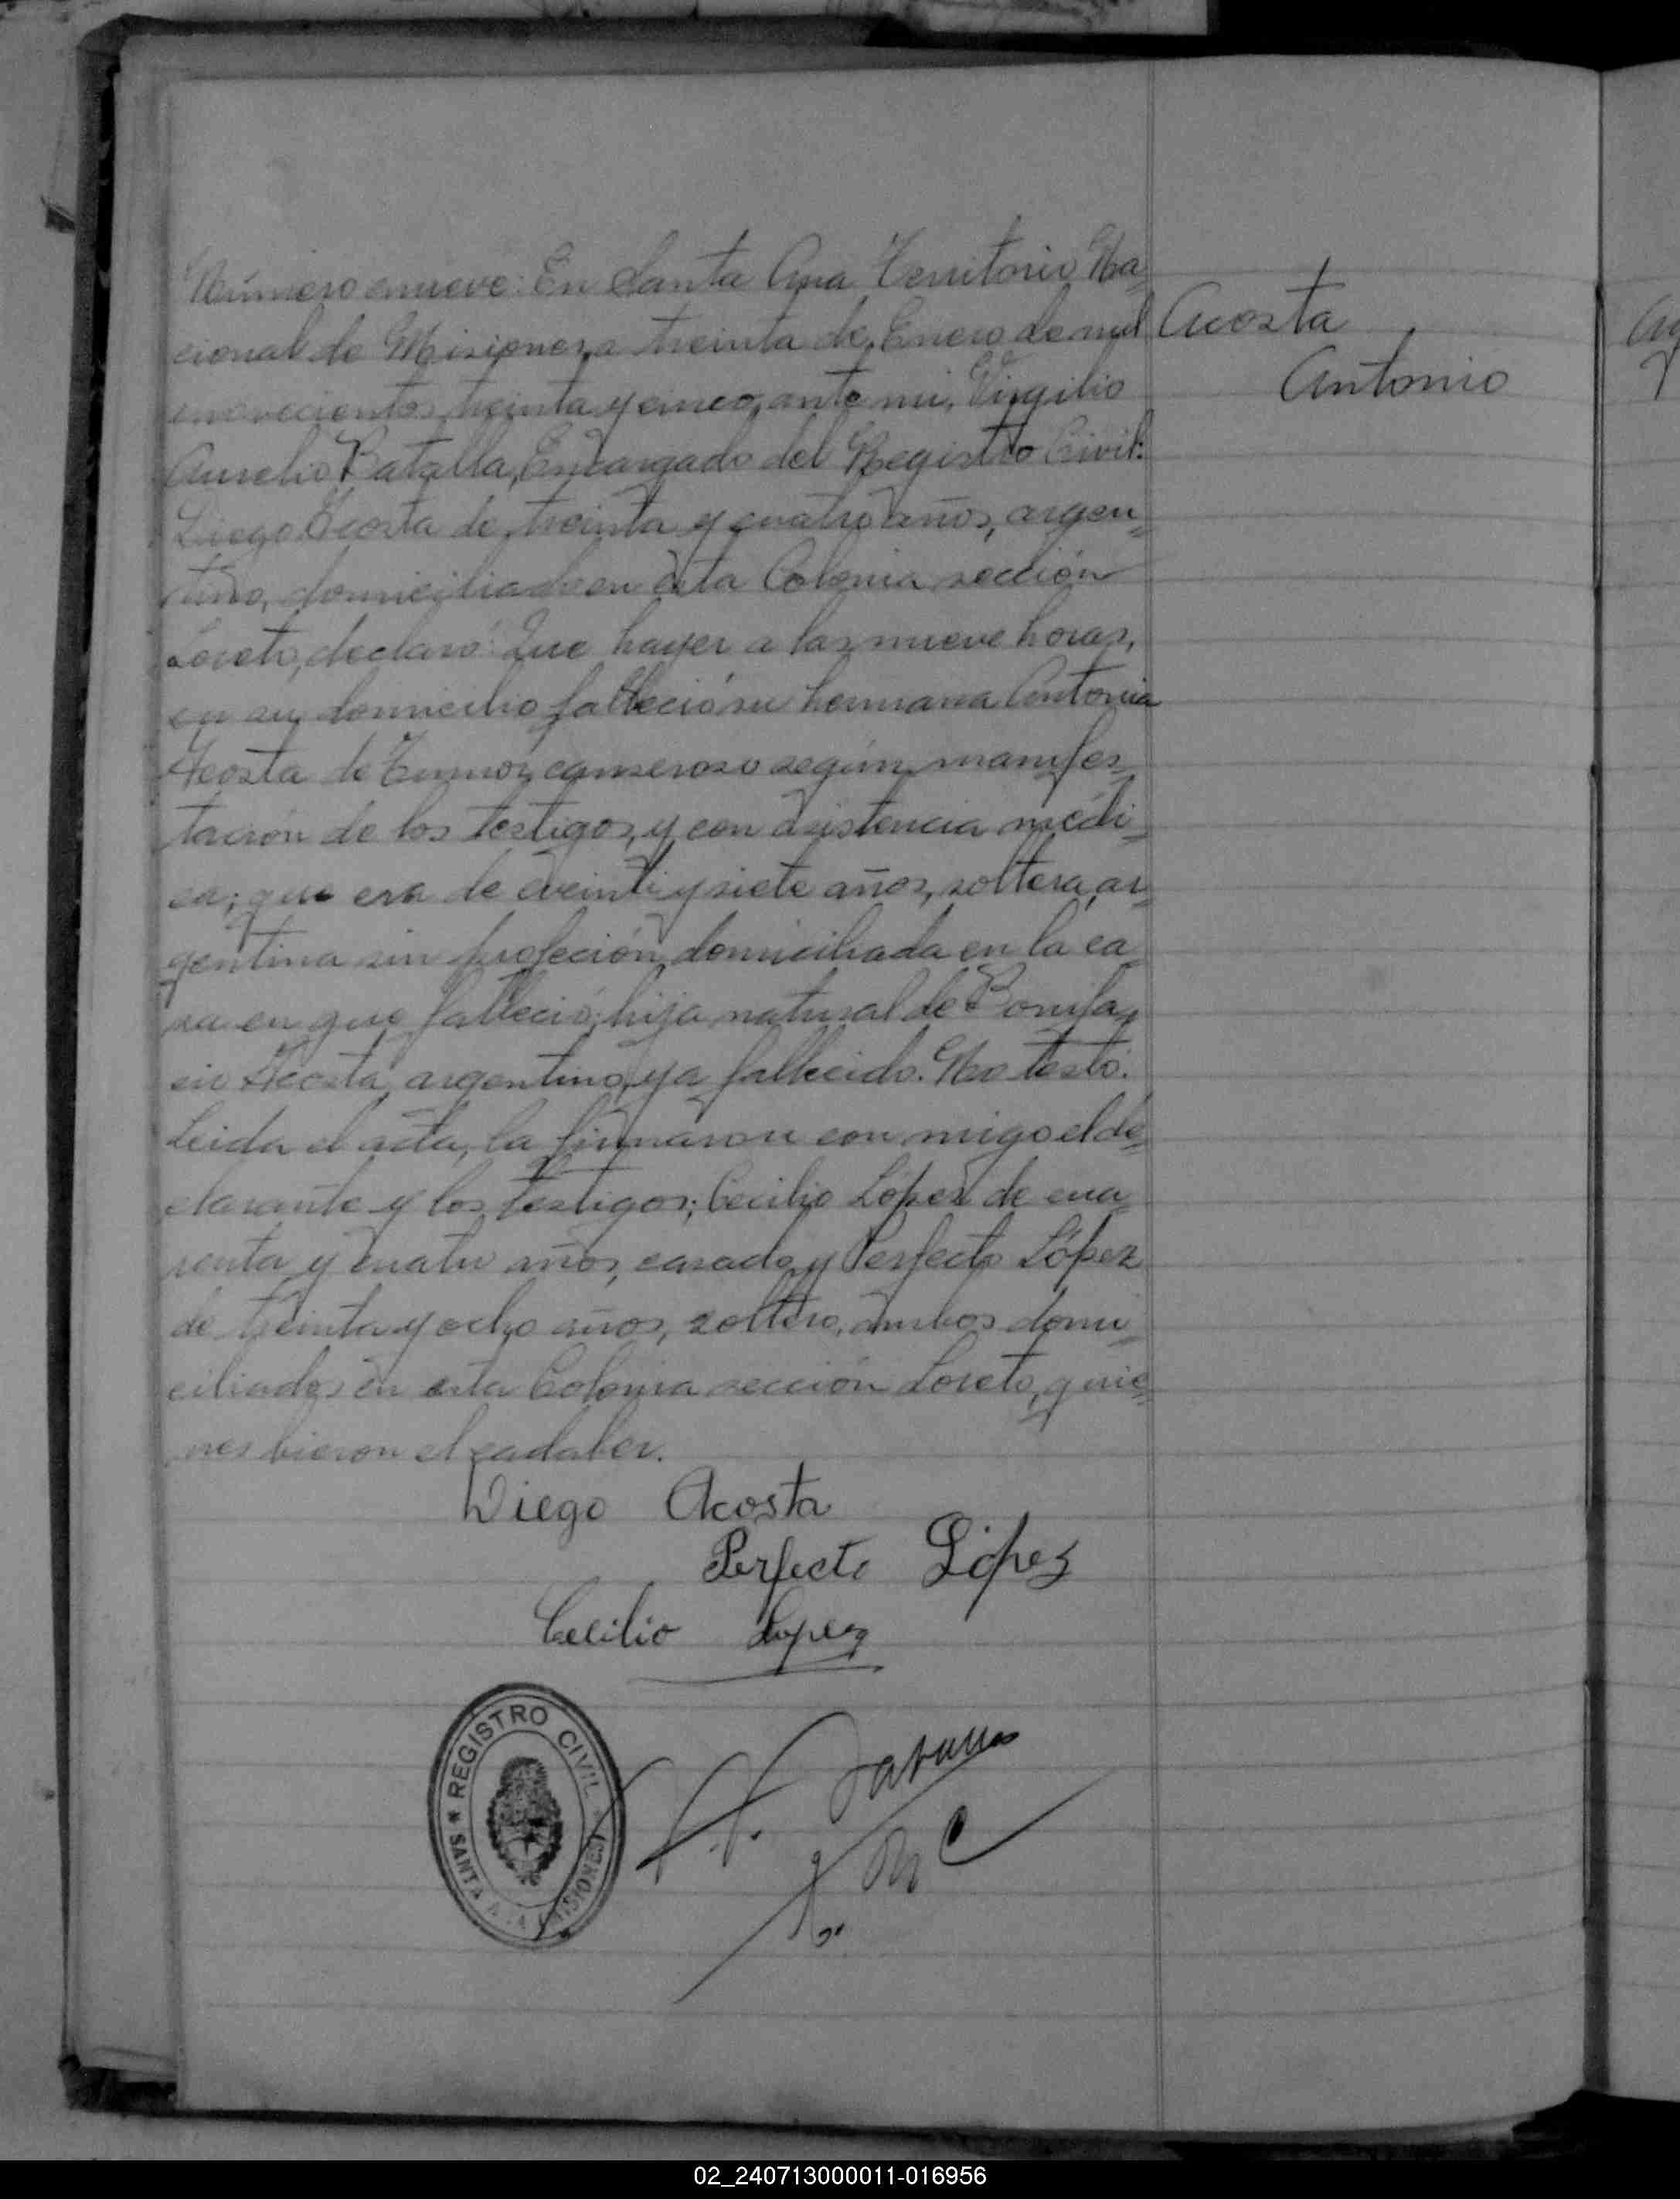 Número nueve: En Santa Ana Territorio Na=
cional de Misiones, a treinta de Enero de mil
novecientos treinta y cinco, ante mi, Virgilio
Aurelio Batalla, Encargado del Registro Civil:
Diego Acosta de treinta y cuatro años, argen=
tino, domiciliado en esta Colonia sección
Loreto, declaró: Que hayer a las nueve horas,
en su domicilio falleció su hermana Antonia
Acosta de Tumor canseroso según manifes=
tación de los testigos, y con asistencia médi=
ca; que era de veinti y siete años, soltera, ar=
gentina sin profeción, domiciliada en la ca=
sa en que falleció; hija natural de Bonifa=
cio Acosta, argentino, ya fallecido. No testó.
Leida el acta, la firmaron con migo el de=
clarante y los testigos; Cecilio López de cua=
renta y cuatro años, casado, y Perfecto López
de treinta y ocho años, soltero, ambos domi=
ciliados en esta Colonia sección Loreto, quie=
nes bieron el cadaber.
Acosta
Antonio
Diego Acosta
Perfecto López
Cecilio Lopez
REGISTRO CIVIL
SANTA ANA (MISIONES)
02_240713000011-016956